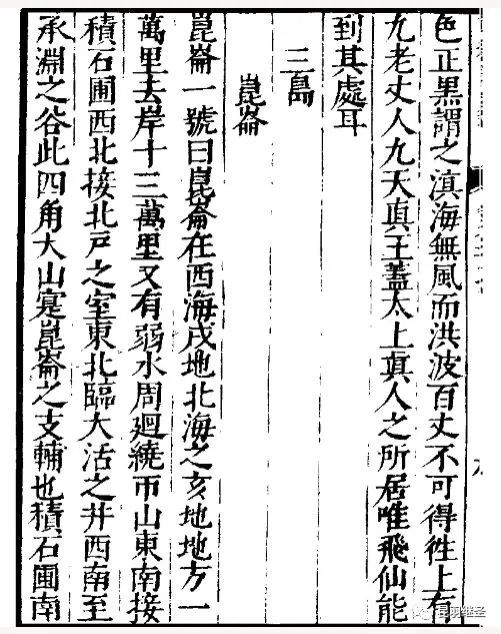 色正黒謂之溟海無風而洪波百丈不可得徃上有
九老丈人九天真王蓋太上真人之所居唯飛仙能
到其處耳
三島
崑崙
崑崙一號曰崑崙在西海戌地北海之亥地地方一
萬里去岸十三萬里又有弱水周廻繞帀山東南接
積石圃西北接北戸之室東北臨大活之井西南至
承淵之谷此四角大山寔崑崙之支輔也積石圃南